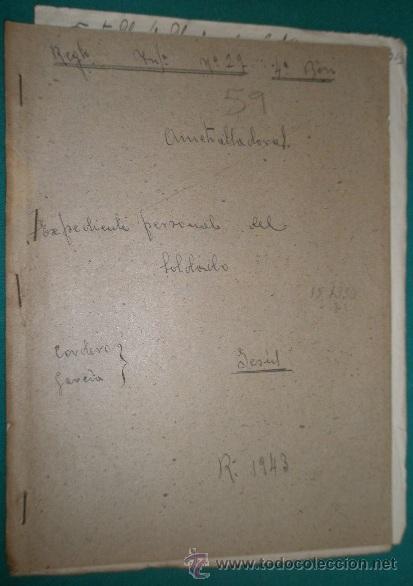 Regto. Infa. Nº 27 4º Bon
59
Ametralladoras.
Expediente personal del
Soldado
Cordero } Jesús
García
R. 1943
TODOCOLECCION
www.todocoleccion.net